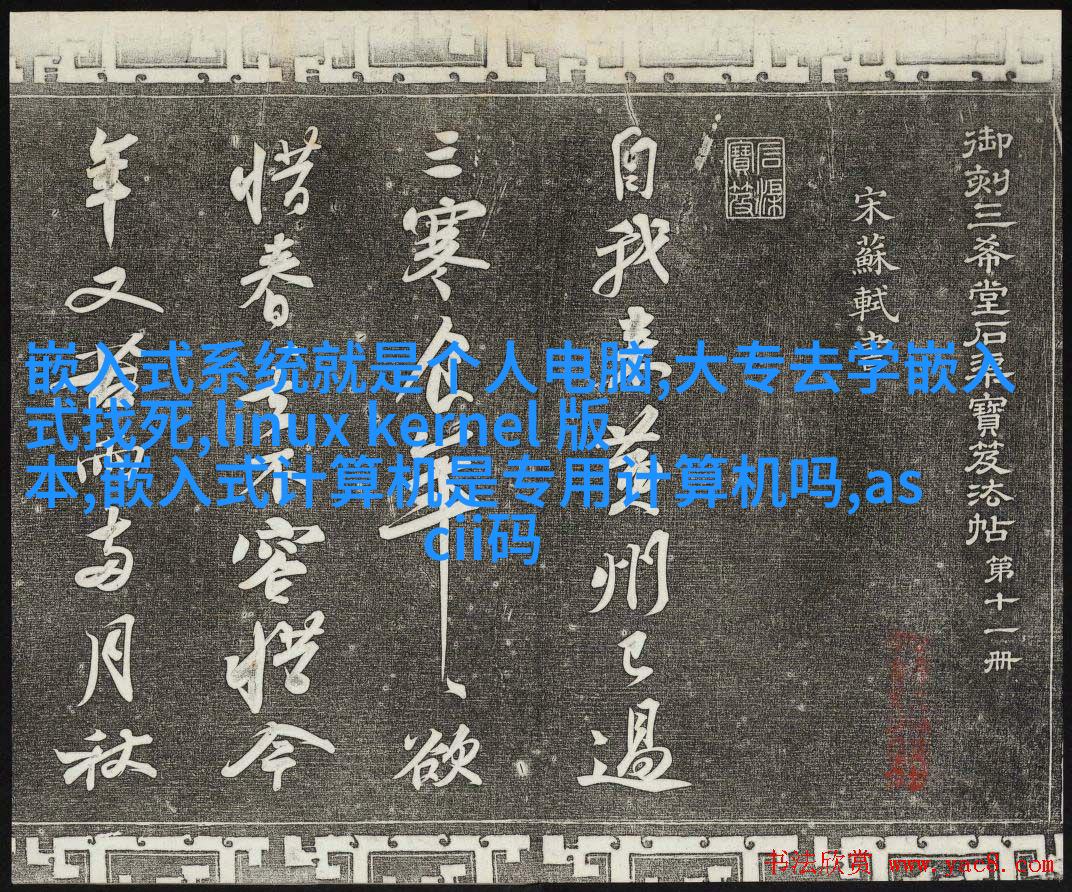 御刻三希堂石渠寶笈法帖 第十一册
宋蘇軾書
石渠寶笈
自我來黃州已過
三寒食年〻欲
惜春去不容惜今
年又苦雨兩月秋
嵌入式系统就是个人电脑,大专去学嵌入
式找死,linux kernel 版
本,嵌入式计算机是专用计算机吗,as
cii码
书法欣赏 www.yac8.com